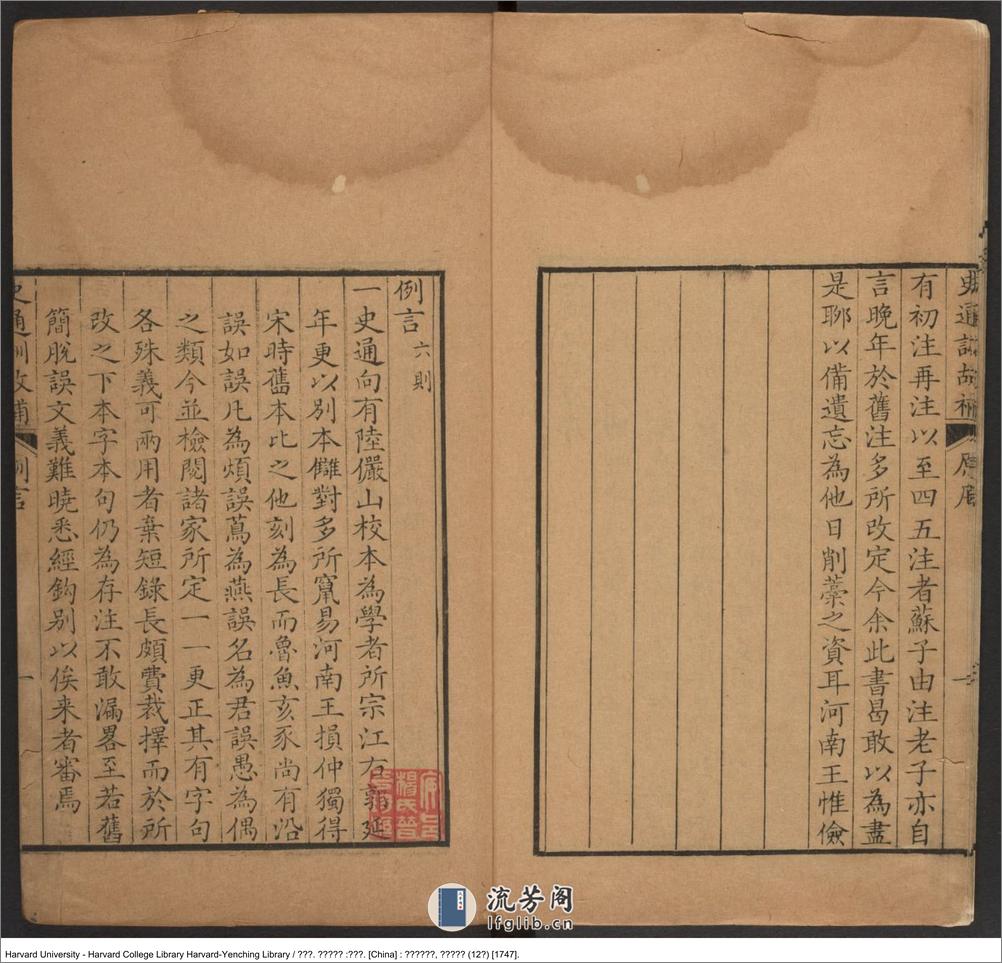 有初注再注以至四五注者蘇子由注老子亦自
言晚年於舊注多所改定今余此書曷敢以為盡
是聊以備遺忘為他日削藁之資耳河南王惟儉
例言六則
一史通向有陸儼山校本為學者所宗江右郭延
年更以別本讎對多所竄易河南王損仲獨得
宋時舊本比之他刻為長而魯魚亥豕尚有沿
誤如誤凡為煩誤蔿為燕誤名為君誤愚為偶
之類今並檢閱諸家所定一一更正其有字句
各殊義可兩用者棄短錄長頗費裁擇而於所
改之下本字本句仍為存注不敢漏畧至若舊
簡脫誤文義難曉悉經鈎別以俟来者審焉
史通訓故補
例言
一
流芳阁
lfglib.cn
Harvard University - Harvard College Library Harvard-Yenching Library / ???. ????? :???. [China] : ??????, ????? (12?) [1747].